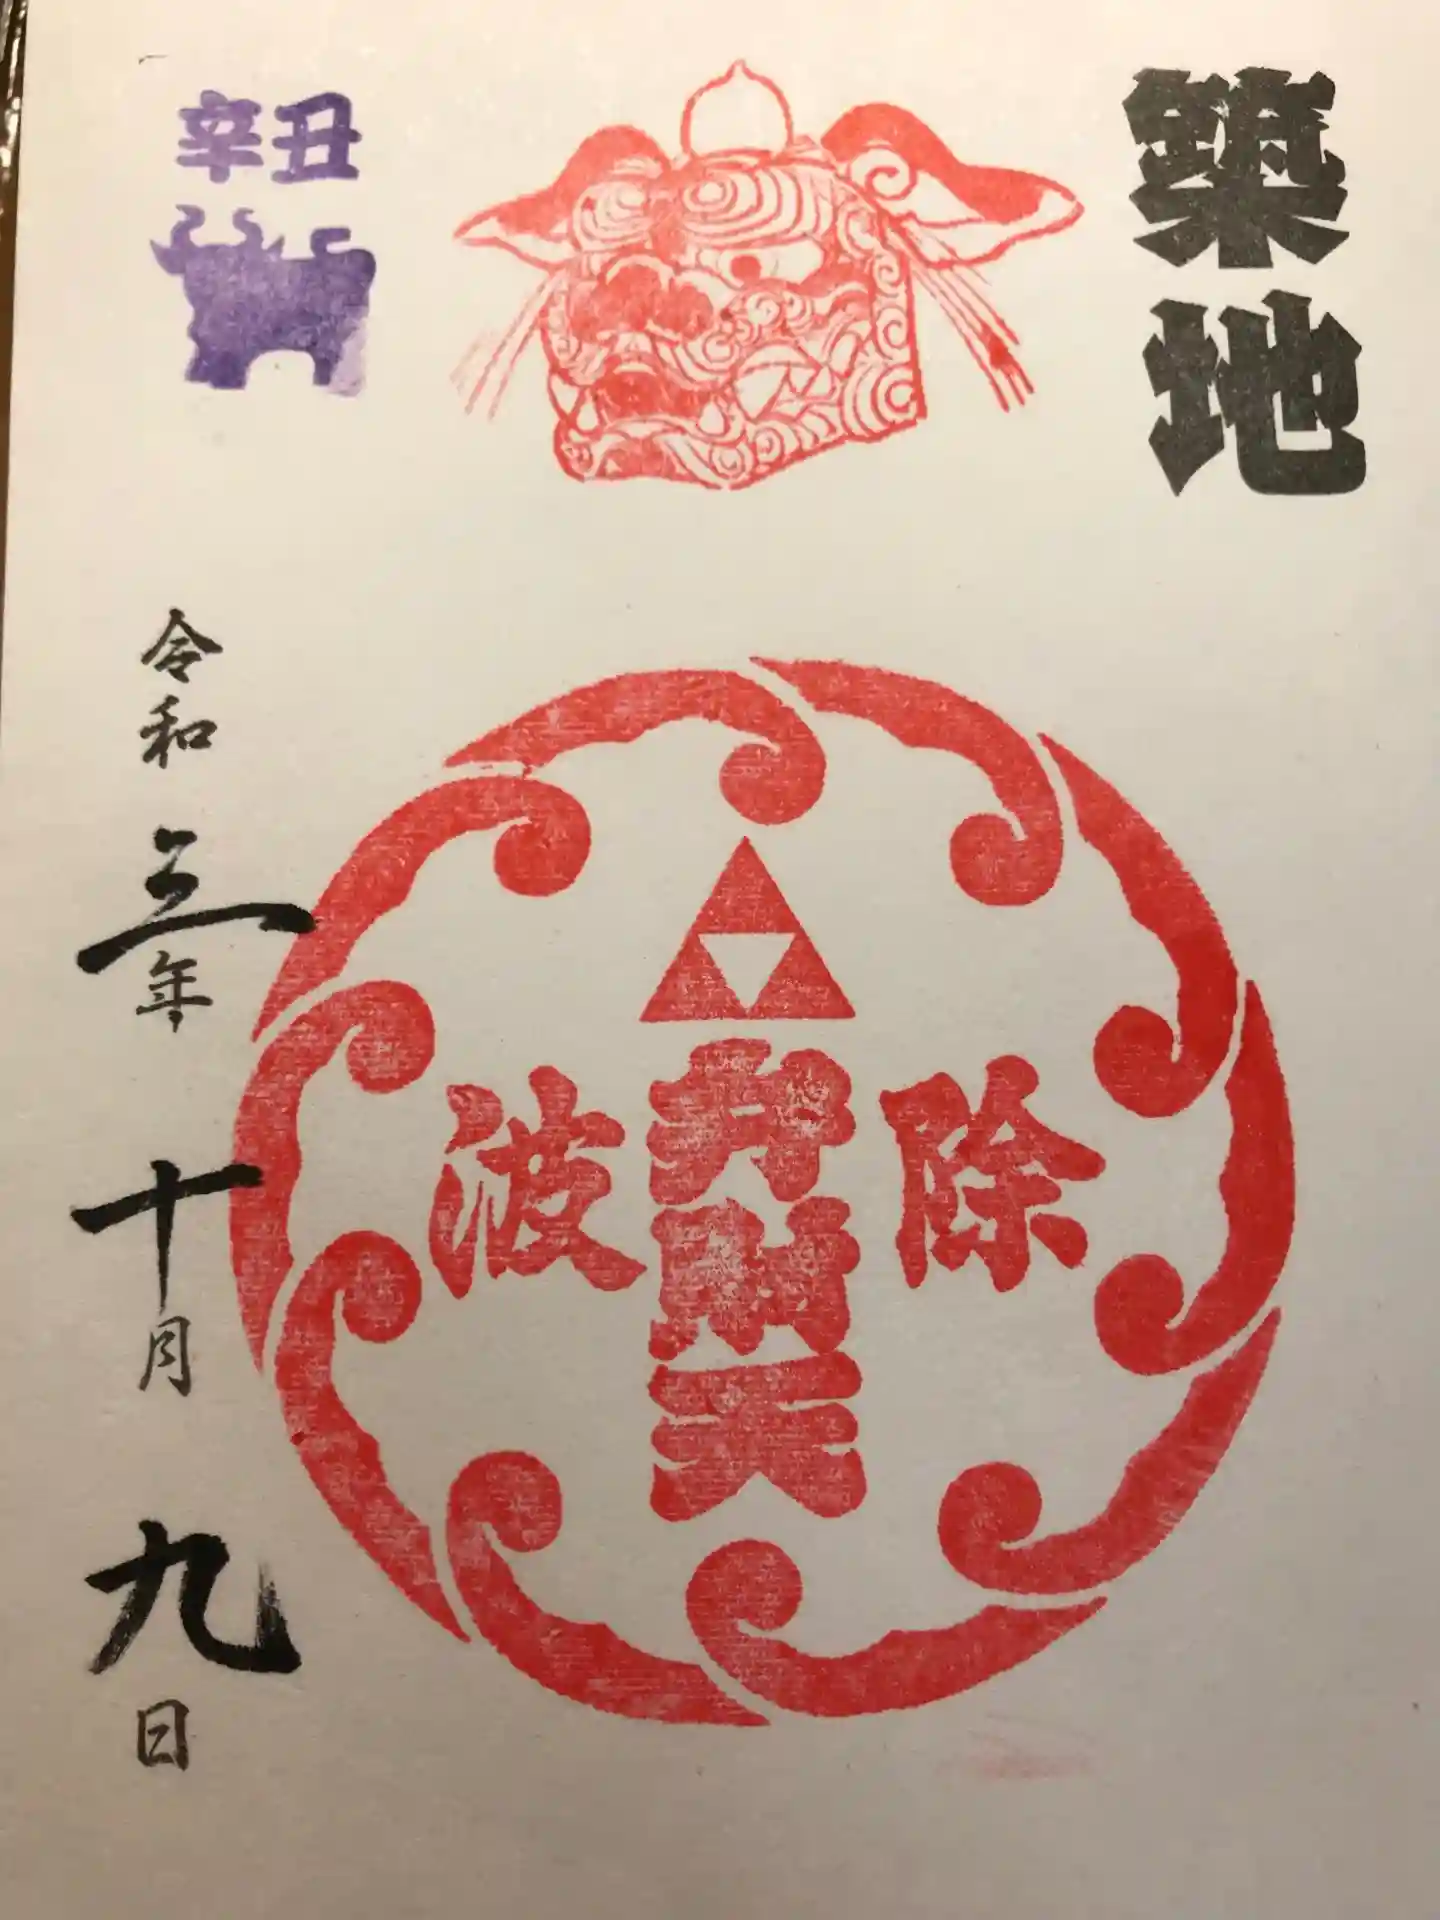 築地
除
弁財天
波
辛丑
令和三年十月九日